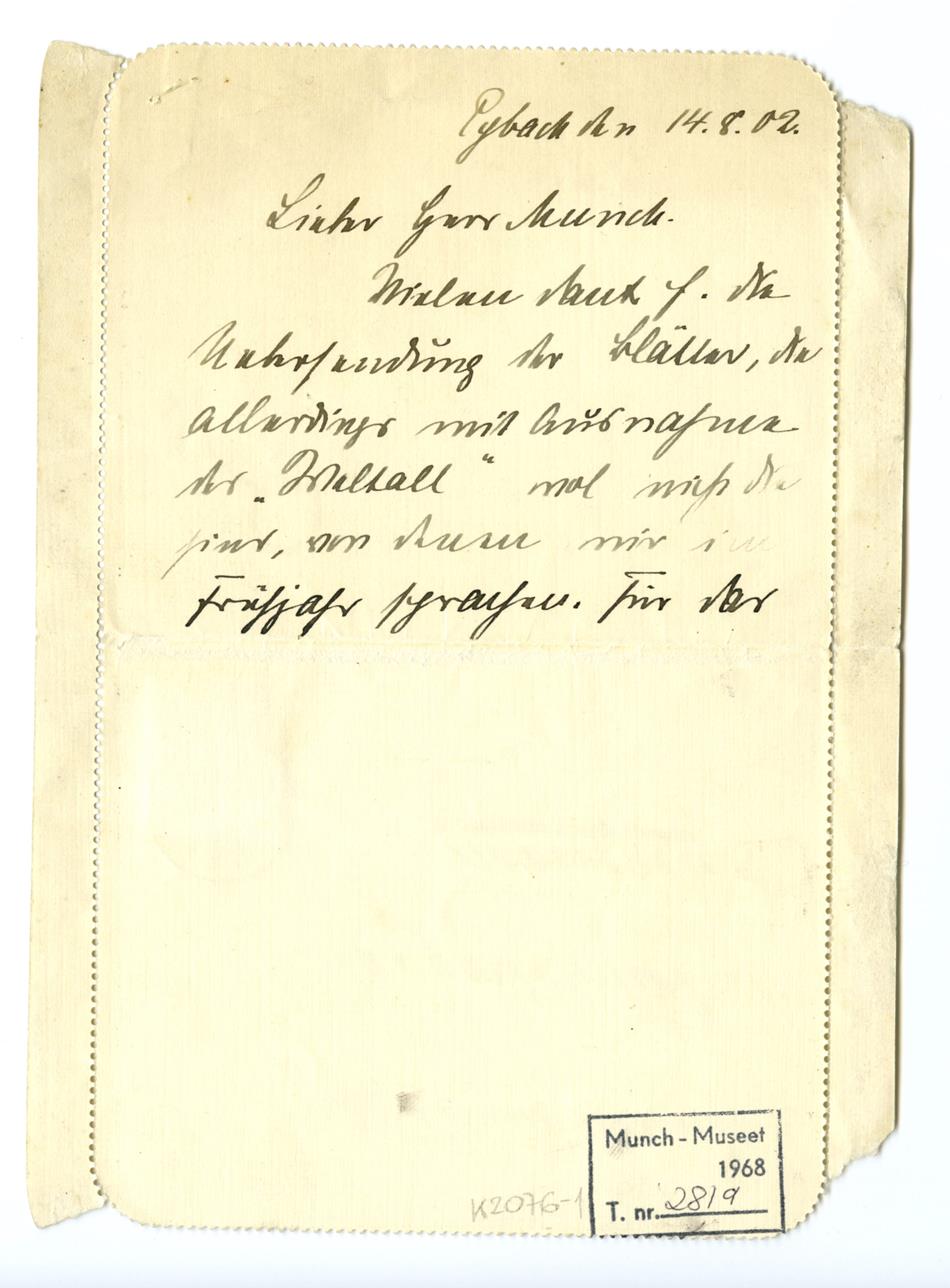 Eybach den 14.8.02.
Lieber Herr Munch.
Vielen dank f. die
Uebersendung der Blätter, die
allerdings mit Ausnahme
des „Weltall" wol nicht die
sind, von denen wir im
Frühjahr sprachen. Für das
Munch - Museet
1968
T. nr. 2819
K2076-1